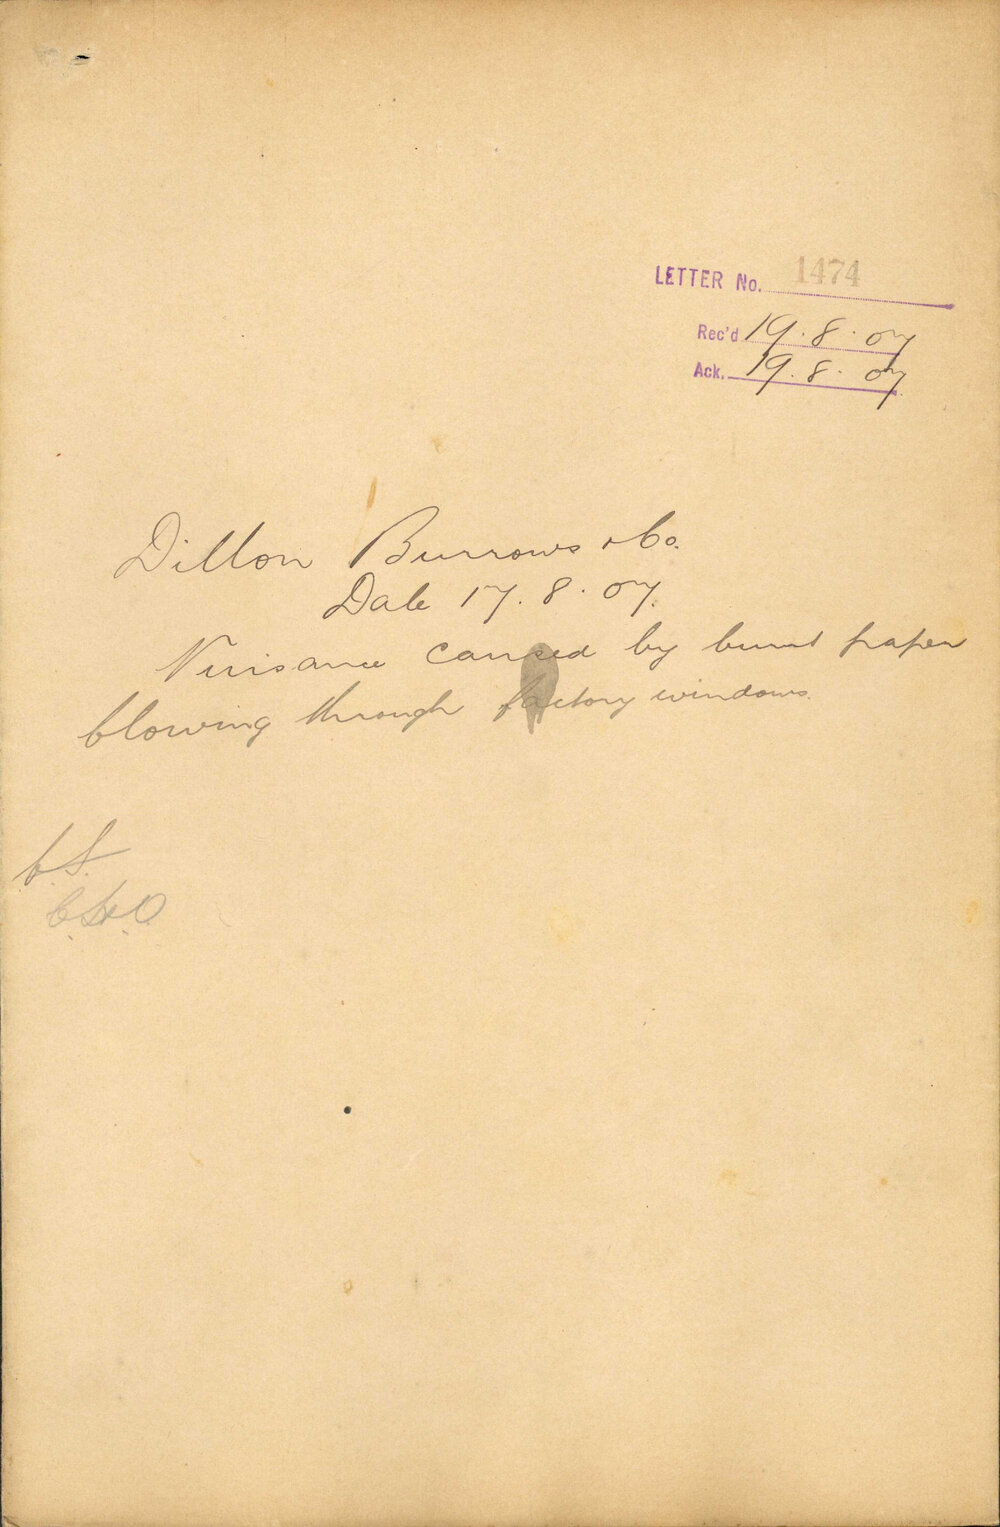 LETTER No. 1474
Rec'd 19. 8. 07
Ack. 19. 8. 07
Dillon Burrows & Co.
Date 17. 8. 07.
Nuisance caused by burnt paper
blowing through factory windows.
C.S.